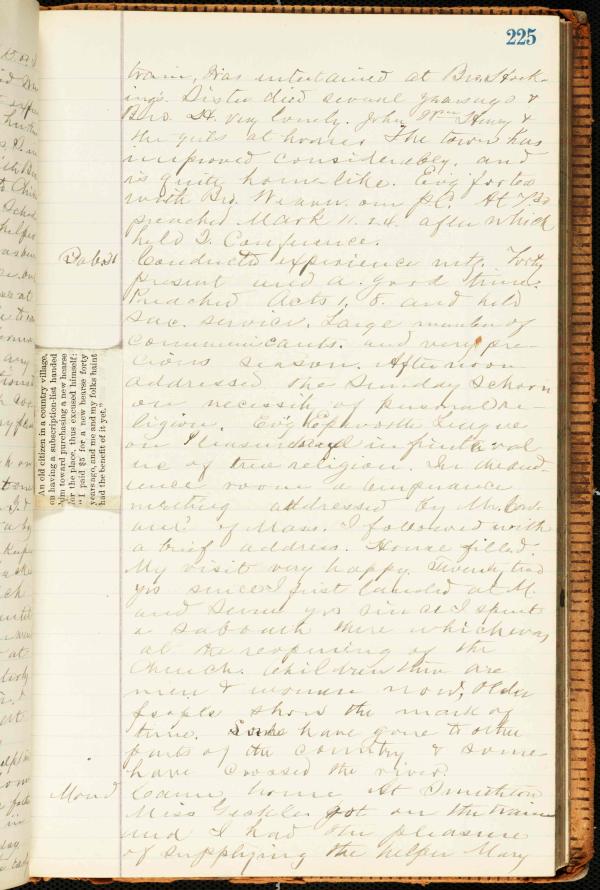 225
train, was entertained at Bro. Hock-
ing's. Sister died several years ago &
Bro. H. very lonely. John, Wm Henry &
the girls at home. The town has
improved considerably, and
is quite home-like. Ev'g
with Bro. on P.C. At 7.30
preached Mark 11.24. after which
held Q. Conference.
Conducted experience mtg. Forty
present and a good time.
Preached Acts 1, 8. and held
sac. service. Large number of
communicants. and very pre-
cious season. Afternoon
addressed the Sunday School
on necessity of personal re-
ligion. Ev'g Epworth League
on infinite val
ue of true religion In the aud-
ience room a temperance
meeting addressed by Mr.
of Mass. I followed with
a brief address. House filled.
My visit very happy. Twenty two
yrs since I first landed at M.
and seven yrs since I spent
a sabbath there which was
at the reopening of the
Church. Children then are
men & women now, older
people show the mark of
time. Some have gone to other
parts of the country & some
have crossed the river.
Mond Came home At
Miss got on the train
and I had the pleasure
of supplying the helper Mary
An old citizen in a country village,
on having a subscription-list handed
him toward purchasing a new hearse
for the place, thus excused himself:
"I paid $5 for a new hearse forty
years ago, and me and my folks haint
had the benefit of it yet."